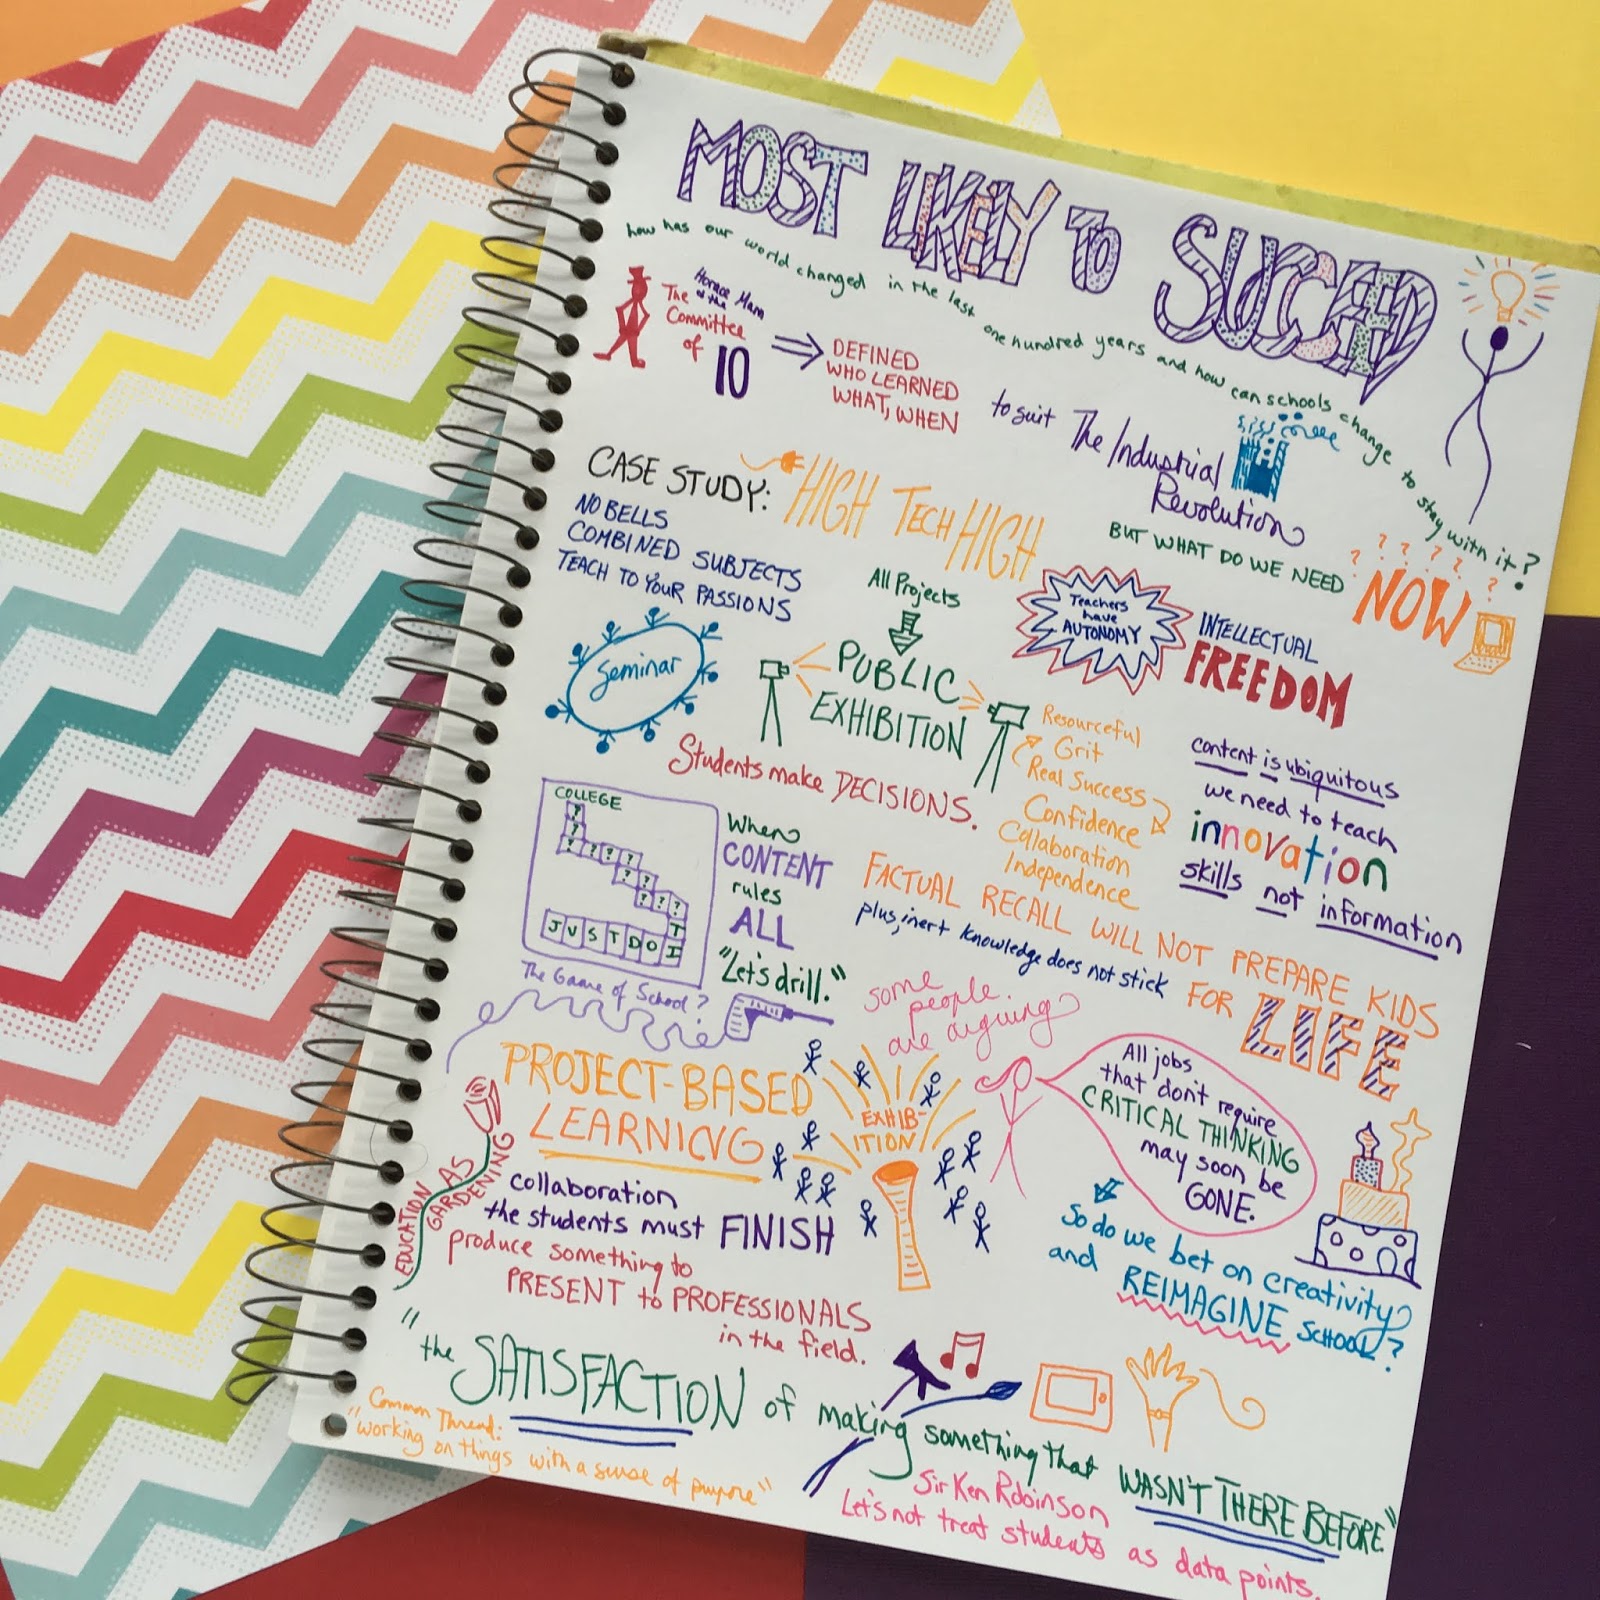 MOST LIKELY TO SUCCEED
how has our world changed in the last one hundred years and how can schools change to stay with it?
Horace Mann
& the
The
Committee
of 10
DEFINED
WHO LEARNED
WHAT, WHEN
to suit The Industrial
Revolution
BUT WHAT DO WE NEED
? ? ? ? ? ? ?
NOW
CASE STUDY: HIGH TECH HIGH
NO BELLS
COMBINED SUBJECTS
TEACH TO YOUR PASSIONS
Seminar
All Projects
PUBLIC
EXHIBITION
Teachers
have
AUTONOMY
INTELLECTUAL
FREEDOM
Students make DECISIONS.
Resourceful
Grit
Real Success
Confidence
Collaboration
Independence
content is ubiquitous
we need to teach
innovation
skills not information
COLLEGE
?
?
? ? ? ?
? ?
? ? ?
T
J U S T D O I
The Game of School?
When
CONTENT
rules
ALL
"Let's drill."
FACTUAL RECALL WILL NOT PREPARE KIDS
FOR LIFE
plus, inert knowledge does not stick
some
people
are arguing
All jobs
that don't require
CRITICAL THINKING
may soon be
GONE.
So do we bet on creativity
and REIMAGINE SCHOOL?
PROJECT-BASED
LEARNING
EXHIB-
ITION
EDUCATION AS
GARDENING
collaboration
the students must FINISH
produce something to
PRESENT to PROFESSIONALS
in the field.
"the SATISFACTION of making something that WASN'T THERE BEFORE"
Common Thread:
"working on things with a sense of purpose"
Sir Ken Robinson
Let's not treat students as data points.